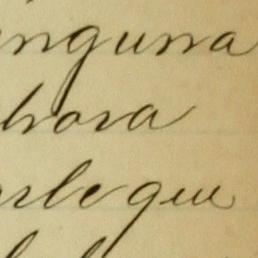 inguna
hora
rle que